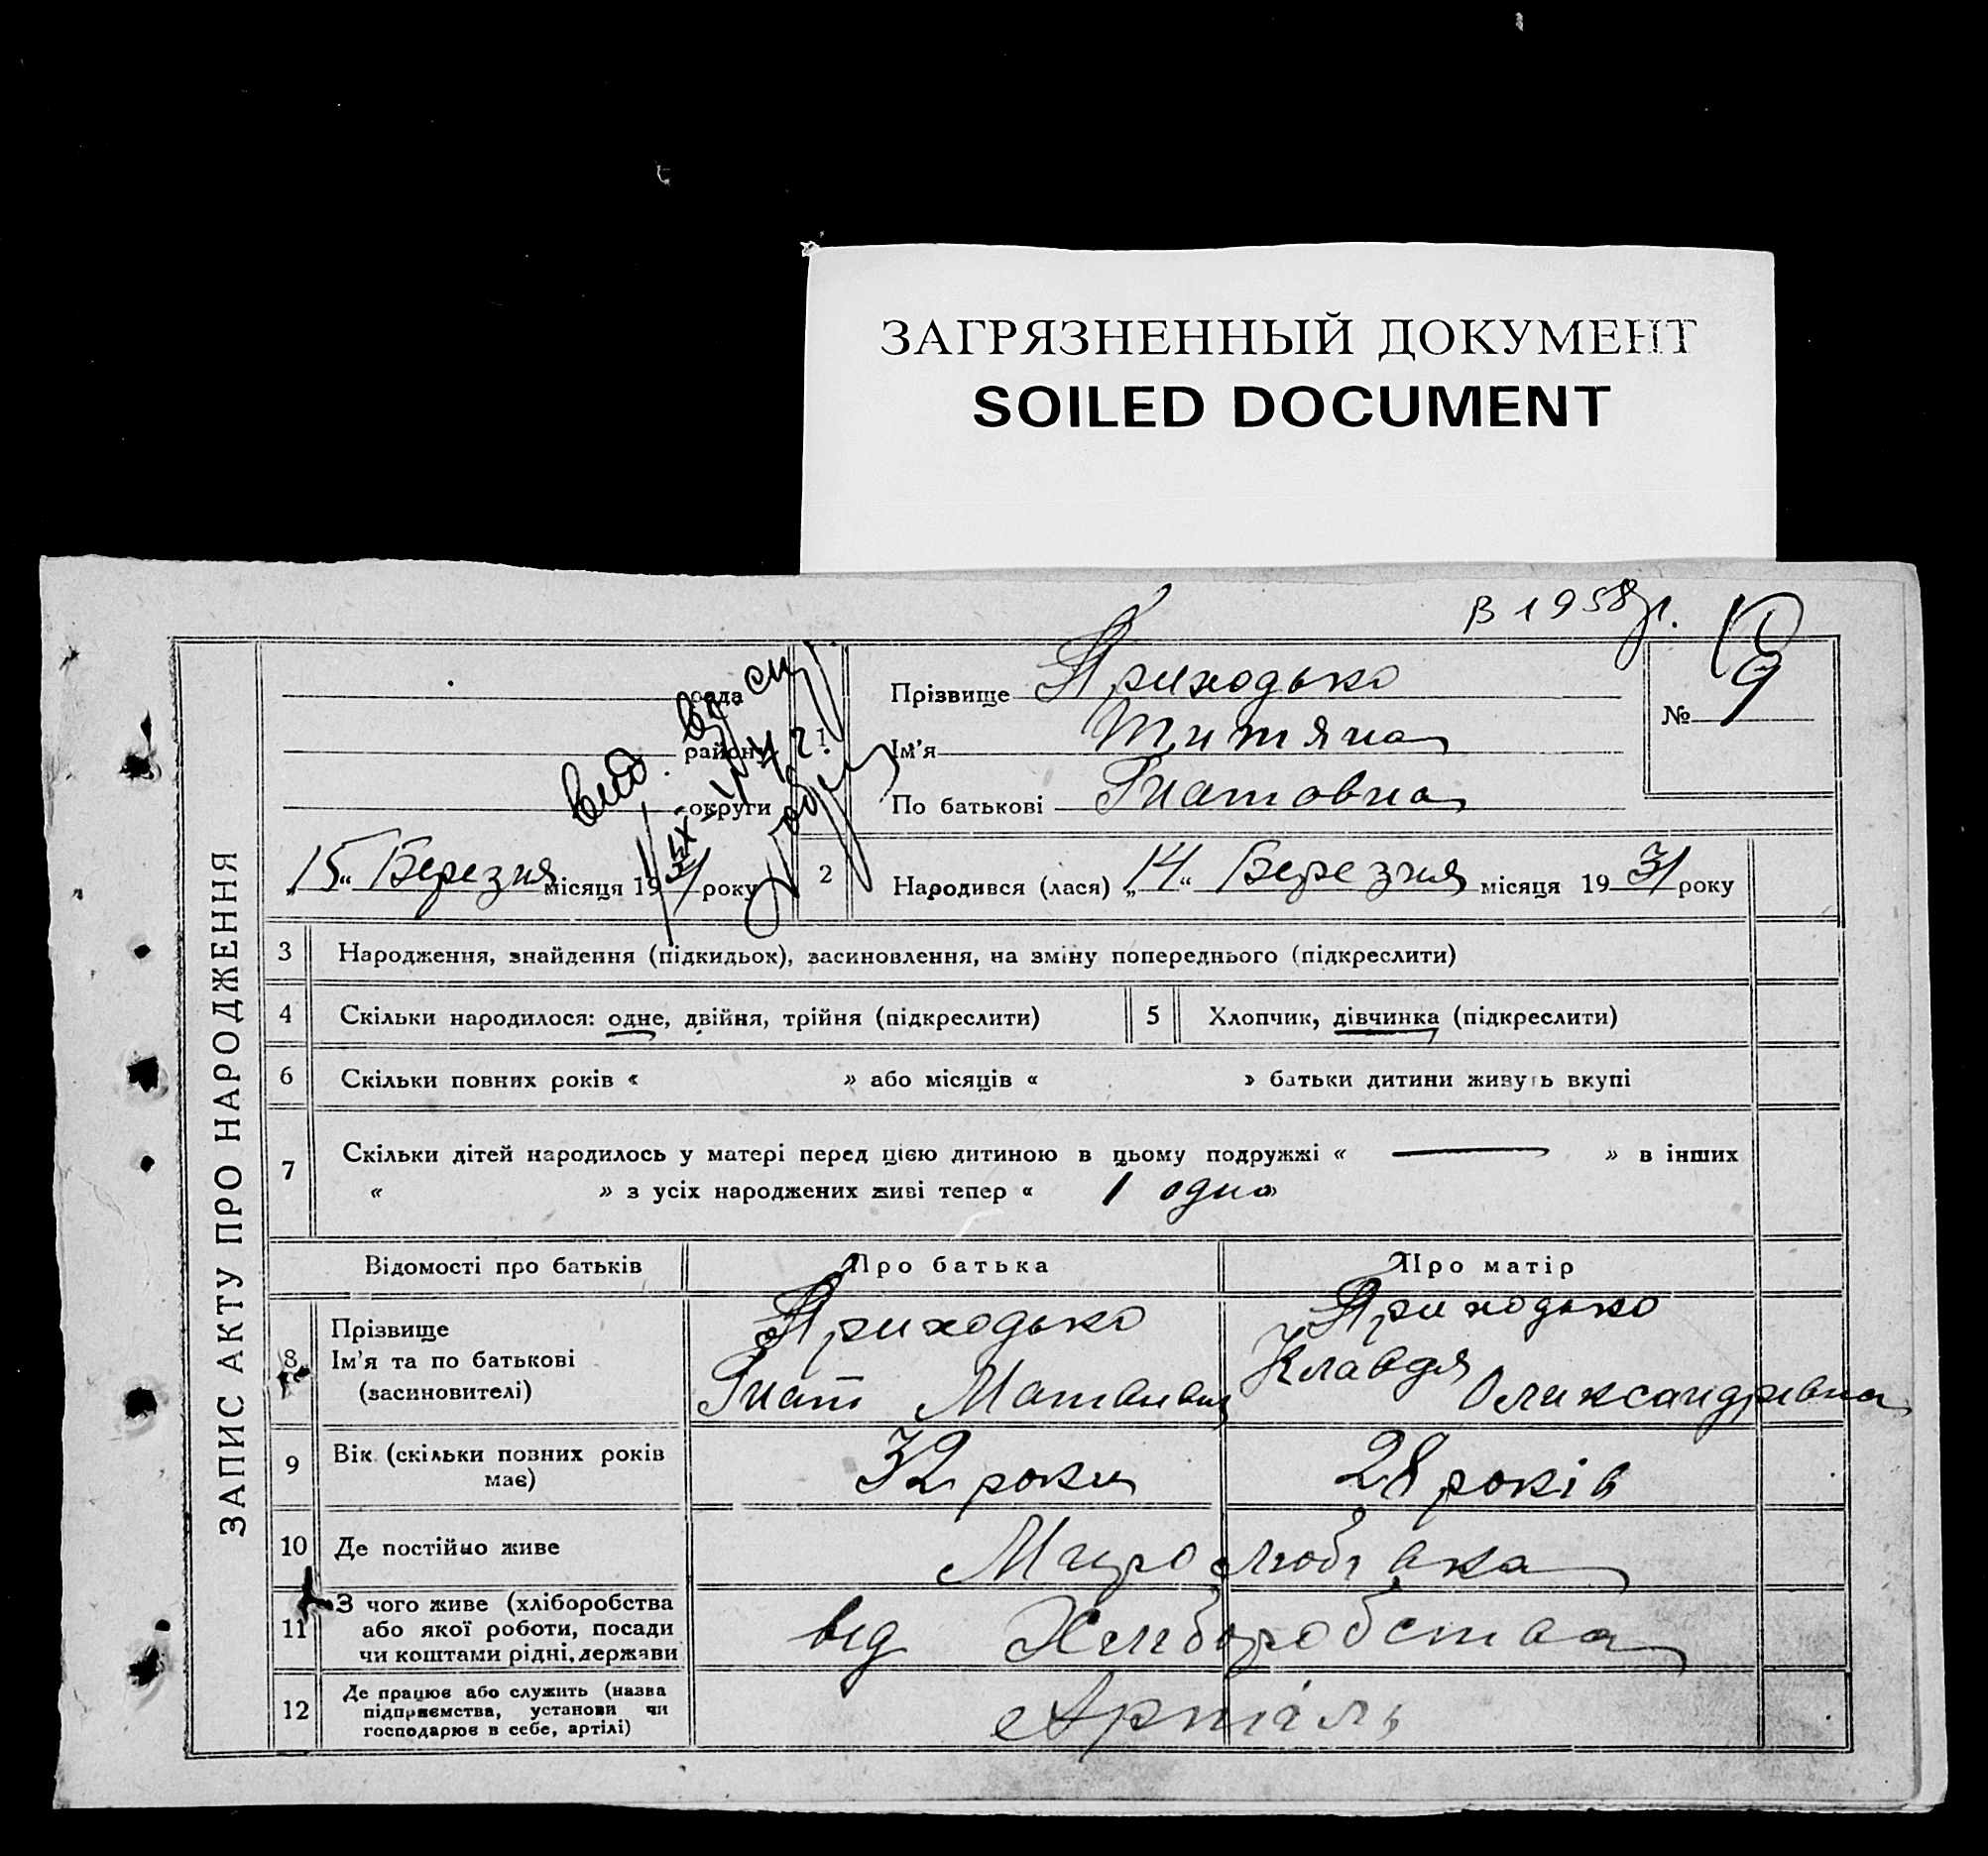 ЗАГРЯЗНЕННЫЙ ДОКУМЕНТ
SOILED DOCUMENT
в 1958 г.
ЗАПИС АКТУ ПРО НАРОДЖЕННЯ
рада
району
округи
„15“ Березня місяця 1931 року
1
Прізвище Приходько
Ім'я Титяна
По батькові Гнатовна
№ 9
2
Народився (лася) „14“ Березня місяця 1931 року
3 Народження, знайдення (підкидьох), засиновлення, на зміну попереднього (підкреслити)
4 Скільки народилося: одне, двійня, трійня (підкреслити)
5 Хлопчик, дівчинка (підкреслити)
6 Скільки повних років « » або місяців « » батьки дитини живуть вкупі
7 Скільки дітей народилось у матері перед цією дитиною в цьому подружжі « — » в інших
« » з усіх народжених живі тепер « 1 одно »
Відомості про батьків
Про батька
Про матір
8 Прізвище
Ім'я та по батькові
(засиновителі)
Приходько
Гнат
Приходько
Клавдя
Олександрівна
9 Вік (скільки повних років
має)
32 роки
28 років
10 Де постійно живе
Миролюбівка
11 З чого живе (хліборобства
або якої роботи, посади
чи коштами рідні, держави
від Хліборобства
12 Де працює або служить (назва
підприємства, установи чи
господарює в себе, артілі)
Артіль